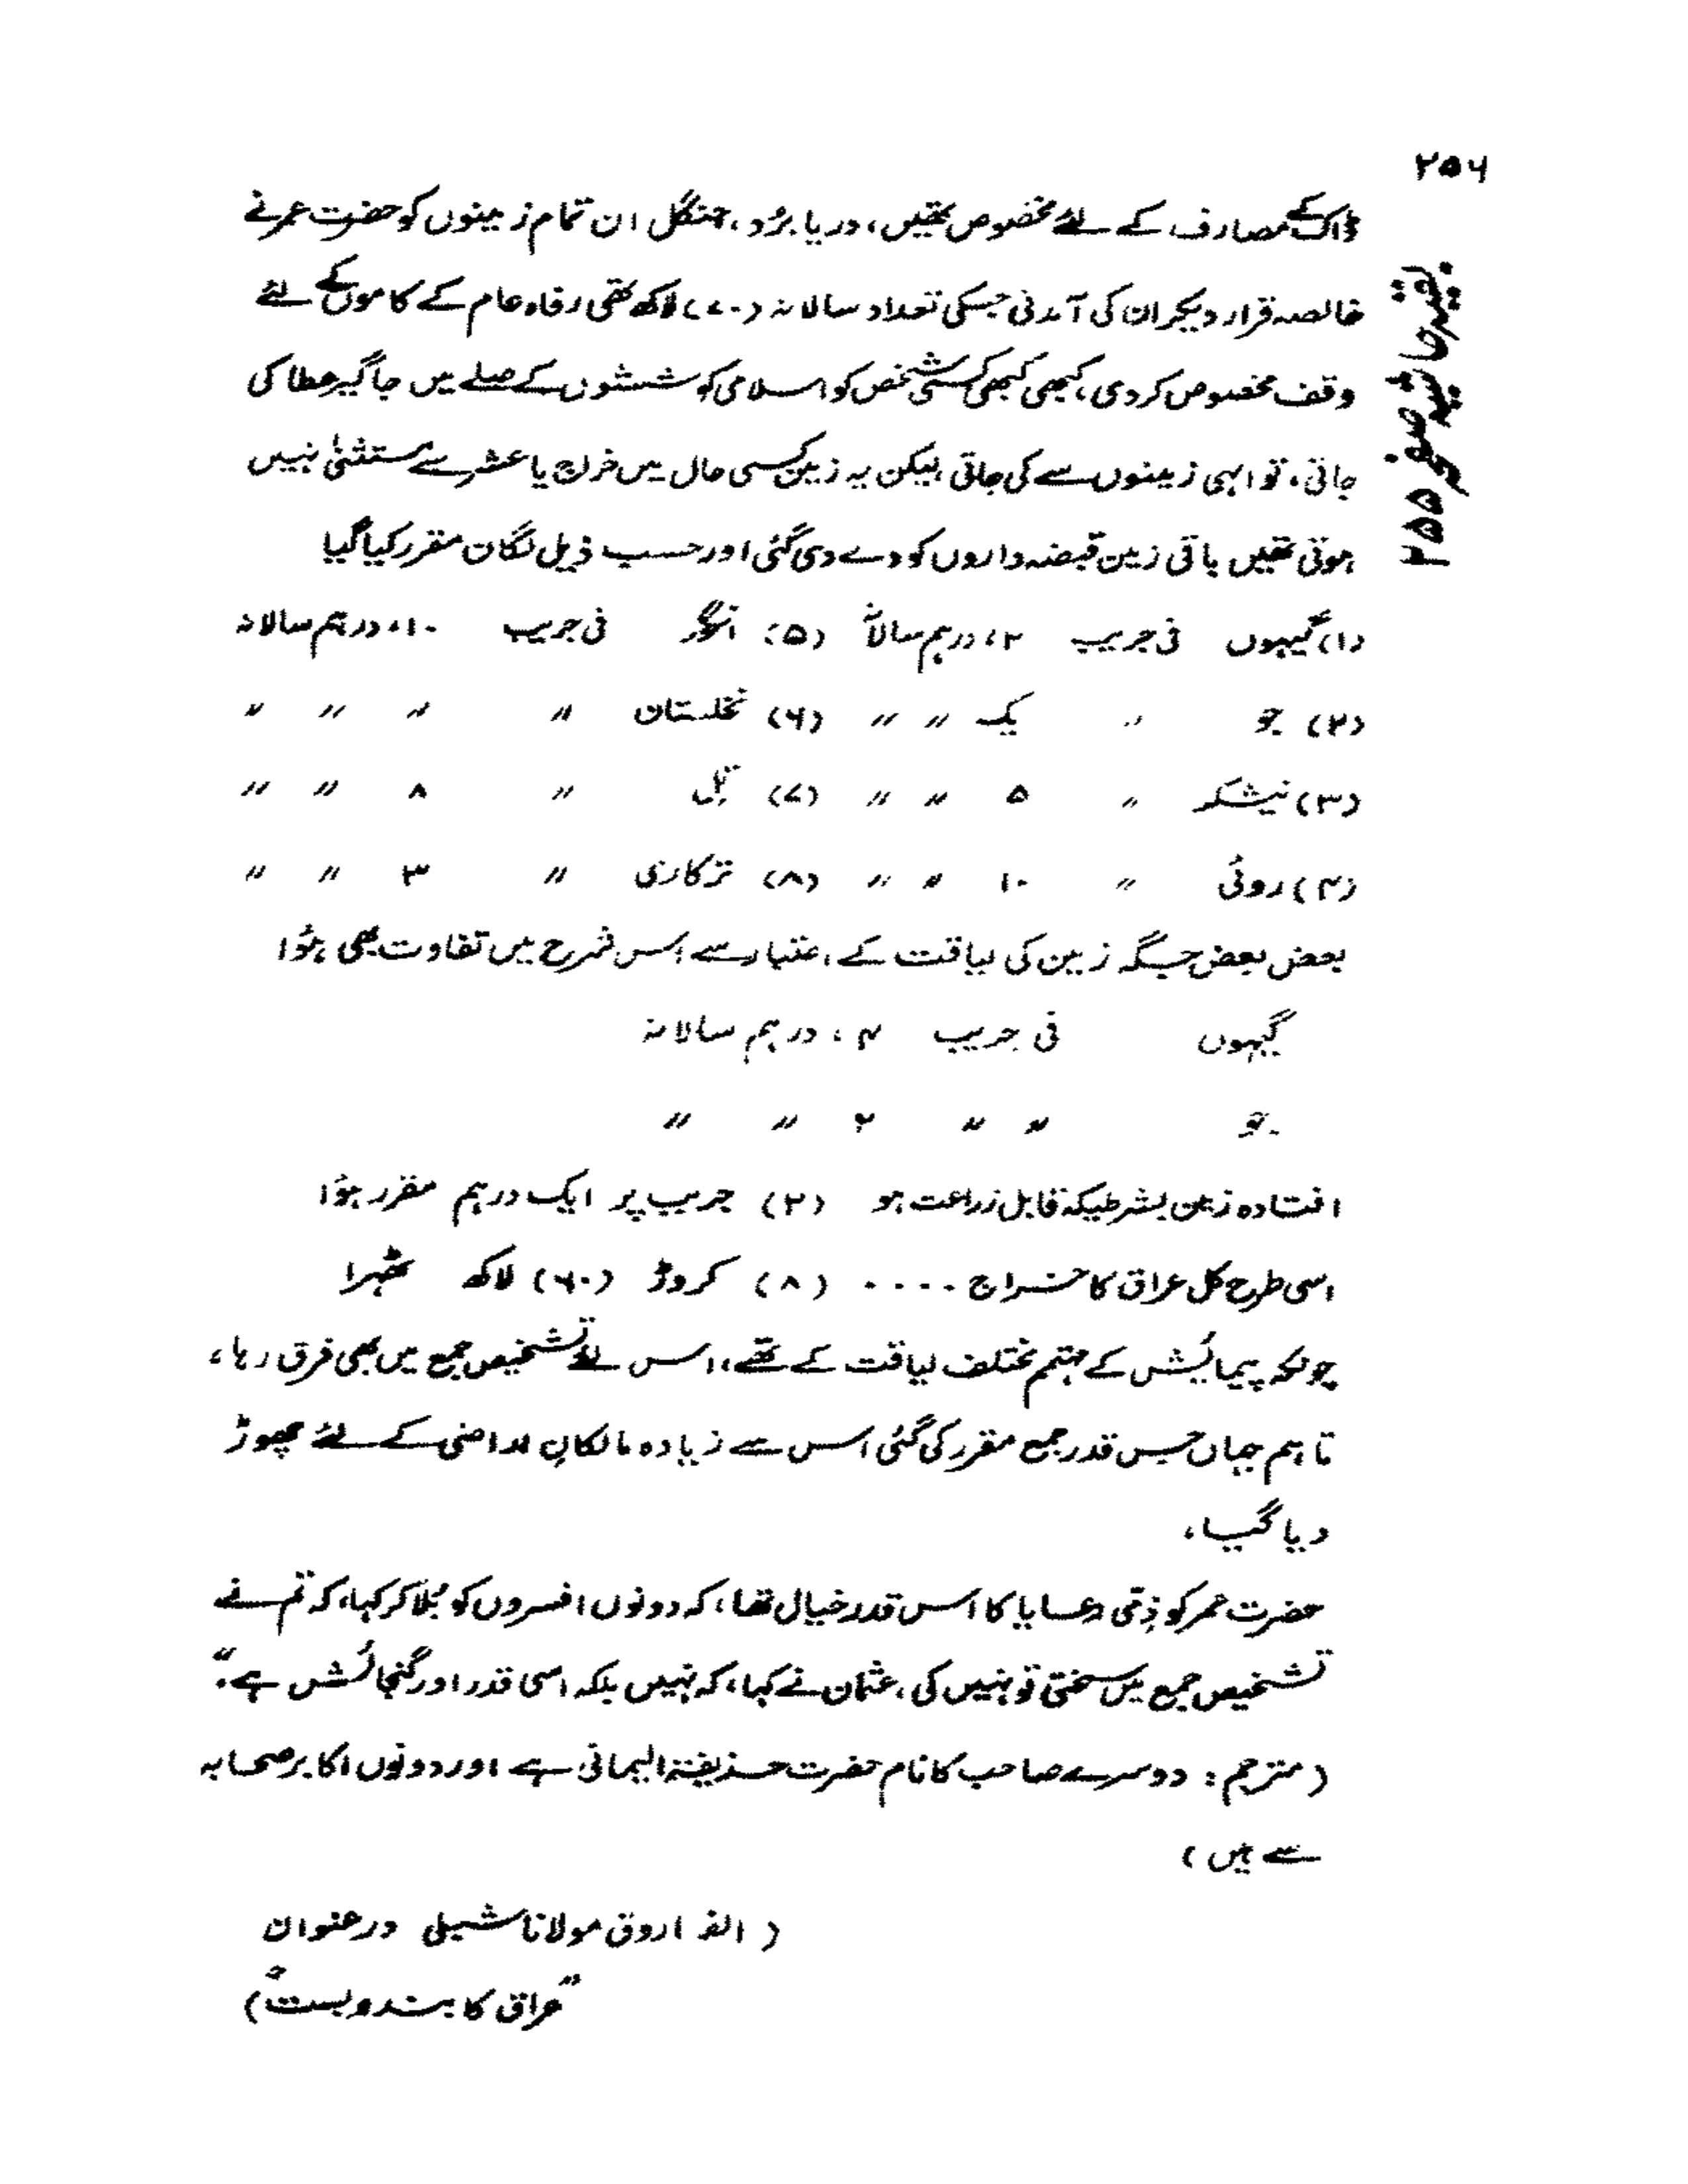 ۲۵۶
بقیہ حاشیہ صفحہ ۲۵۵
ڈاک کے مصارف کے لئے مخصوص تھیں، دریا بُرد، جنگل ان تمام زمینوں کو حضرت عمر نے
خالصہ قرار دیکر ان کی آمدنی جسکی تعداد سالانہ (۷۰) لاکھ تھی رفاہ عام کے کاموں کے لئے
وقف مخصوص کر دی، کبھی کبھی کسی شخص کو اسلامی کوششوں کے صلے میں جاگیر عطا کی
جاتی، تو انہی زمینوں سے کی جاتی لیکن یہ زمین کسی حال میں خراج یا عشر سے مستثنیٰ نہیں
ہوتی تھیں باقی زمین قبضہ داروں کو دے دی گئی اور حسب ذیل لگان مقرر کیا گیا
(۱) گیہوں فی جریب ۲، درہم سالانہ (۵) انگور فی جریب ۱۰، درہم سالانہ
(۲) جو " یک " " (۶) نخلستان " " " "
(۳) نیشکر " ۵ " " (۷) تِل " ۸ " "
(۴) روئی " ۱۰ " " (۸) ترکاری " ۳ " "
بعض بعض جگہ زمین کی لیاقت کے اعتبار سے اس شرح میں تفاوت بھی ہوُا
گیہوں فی جریب ۴، درہم سالانہ
جو " " ۲ " "
افتادہ زمین بشرطیکہ قابل زراعت ہو (۲) جریب پر ایک درہم مقرر ہوُا
اسی طرح کل عراق کا خراج .... (۸) کروڑ (۶۰) لاکھ ٹھہرا
چونکہ پیمائش کے مہتمم مختلف لیاقت کے تھے، اس لئے تشخیص جمع میں بھی فرق رہا،
تاہم جہاں جس قدر جمع مقرر کی گئی اس سے زیادہ مالکانِ اراضی کے لئے چھوڑ
دیا گیا،
حضرت عمر کو ذِمّی رعایا کا اس قدر خیال تھا، کہ دونوں افسروں کو بُلا کر کہا، کہ تم نے
تشخیص جمع میں سختی تو نہیں کی، عثمان نے کہا، کہ نہیں بلکہ اسی قدر اور گنجائش ہے۔"
(مترجم: دوسرے صاحب کا نام حضرت حذیفۃ الیمانی ہے اور دونوں اکابر صحابہ
سے ہیں)
(الفاروق مولانا شبلی در عنوان
"عراق کا بندوبست")